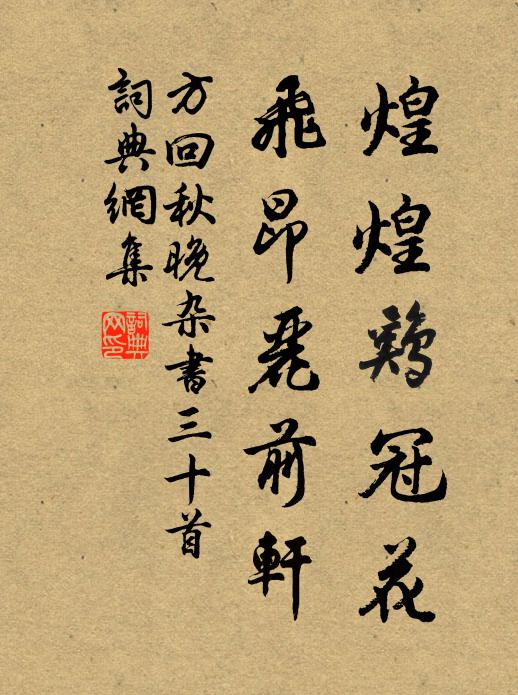 煌煌鷄冠花
飛昂麗前軒
方回秋晚杂書三十首
詞典網集
詞典网印